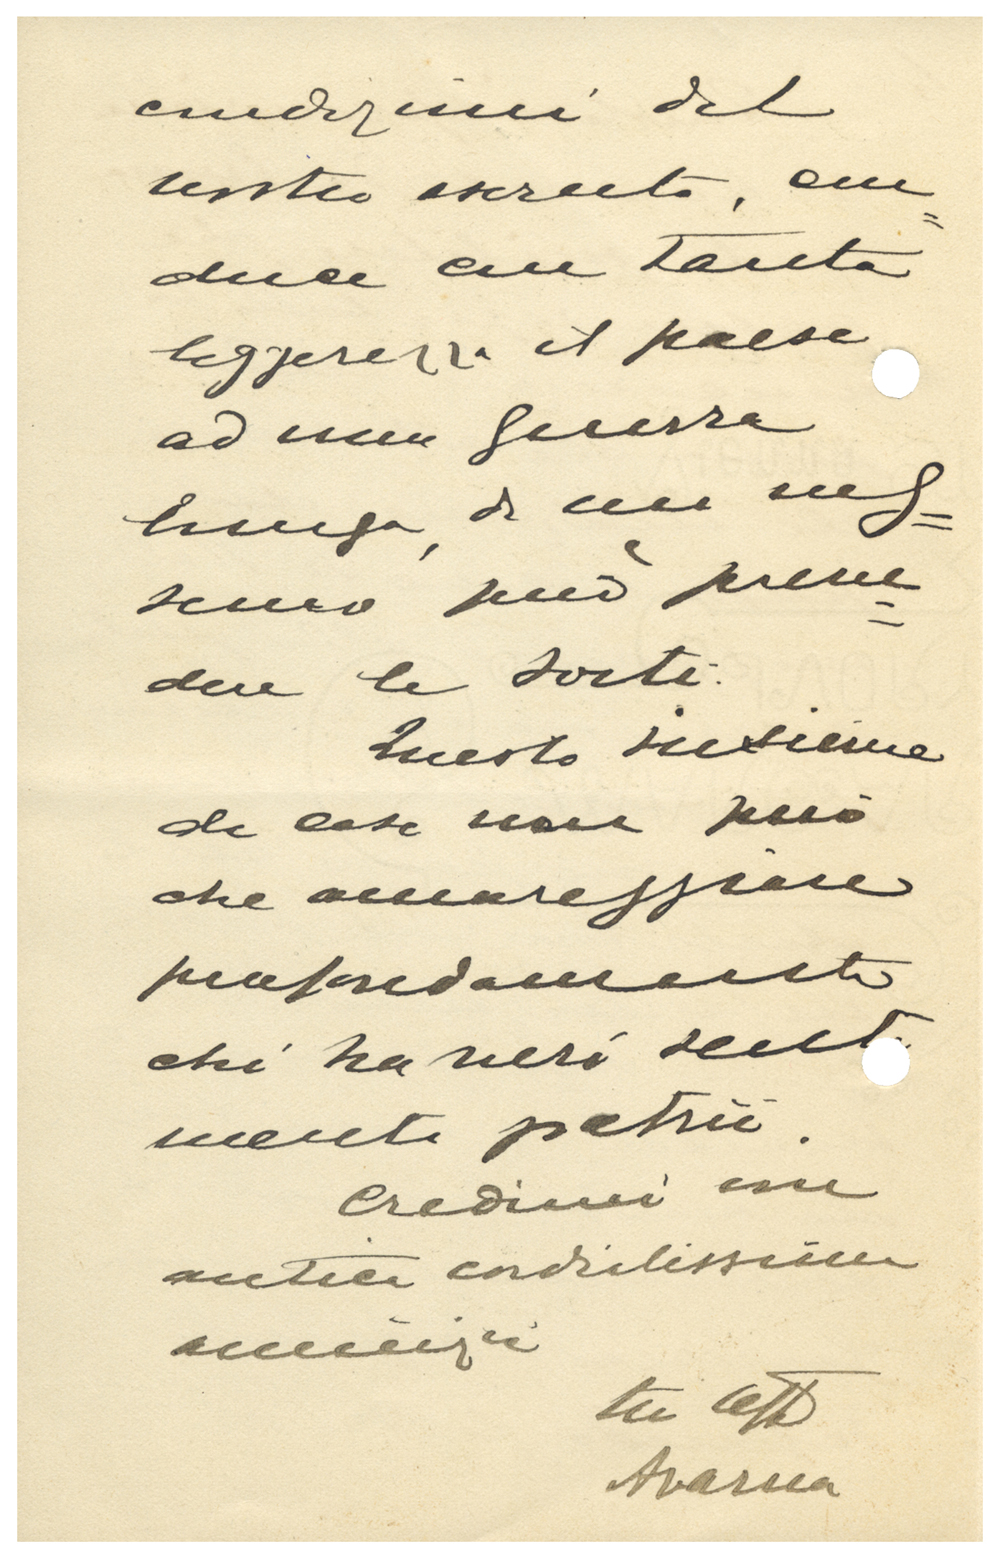 condizioni del
nostro esercito, con=
duce con tanta
leggerezza il paese
ad una guerra
lunga, di cui nes=
suno può preve=
dere le sorti.
Questo insieme
di cose non può
che amareggiare
profondamente
chi ha veri senti
menti patrii.
Credimi con
antica cordialissima
amicizia
tuo aff
Avarna